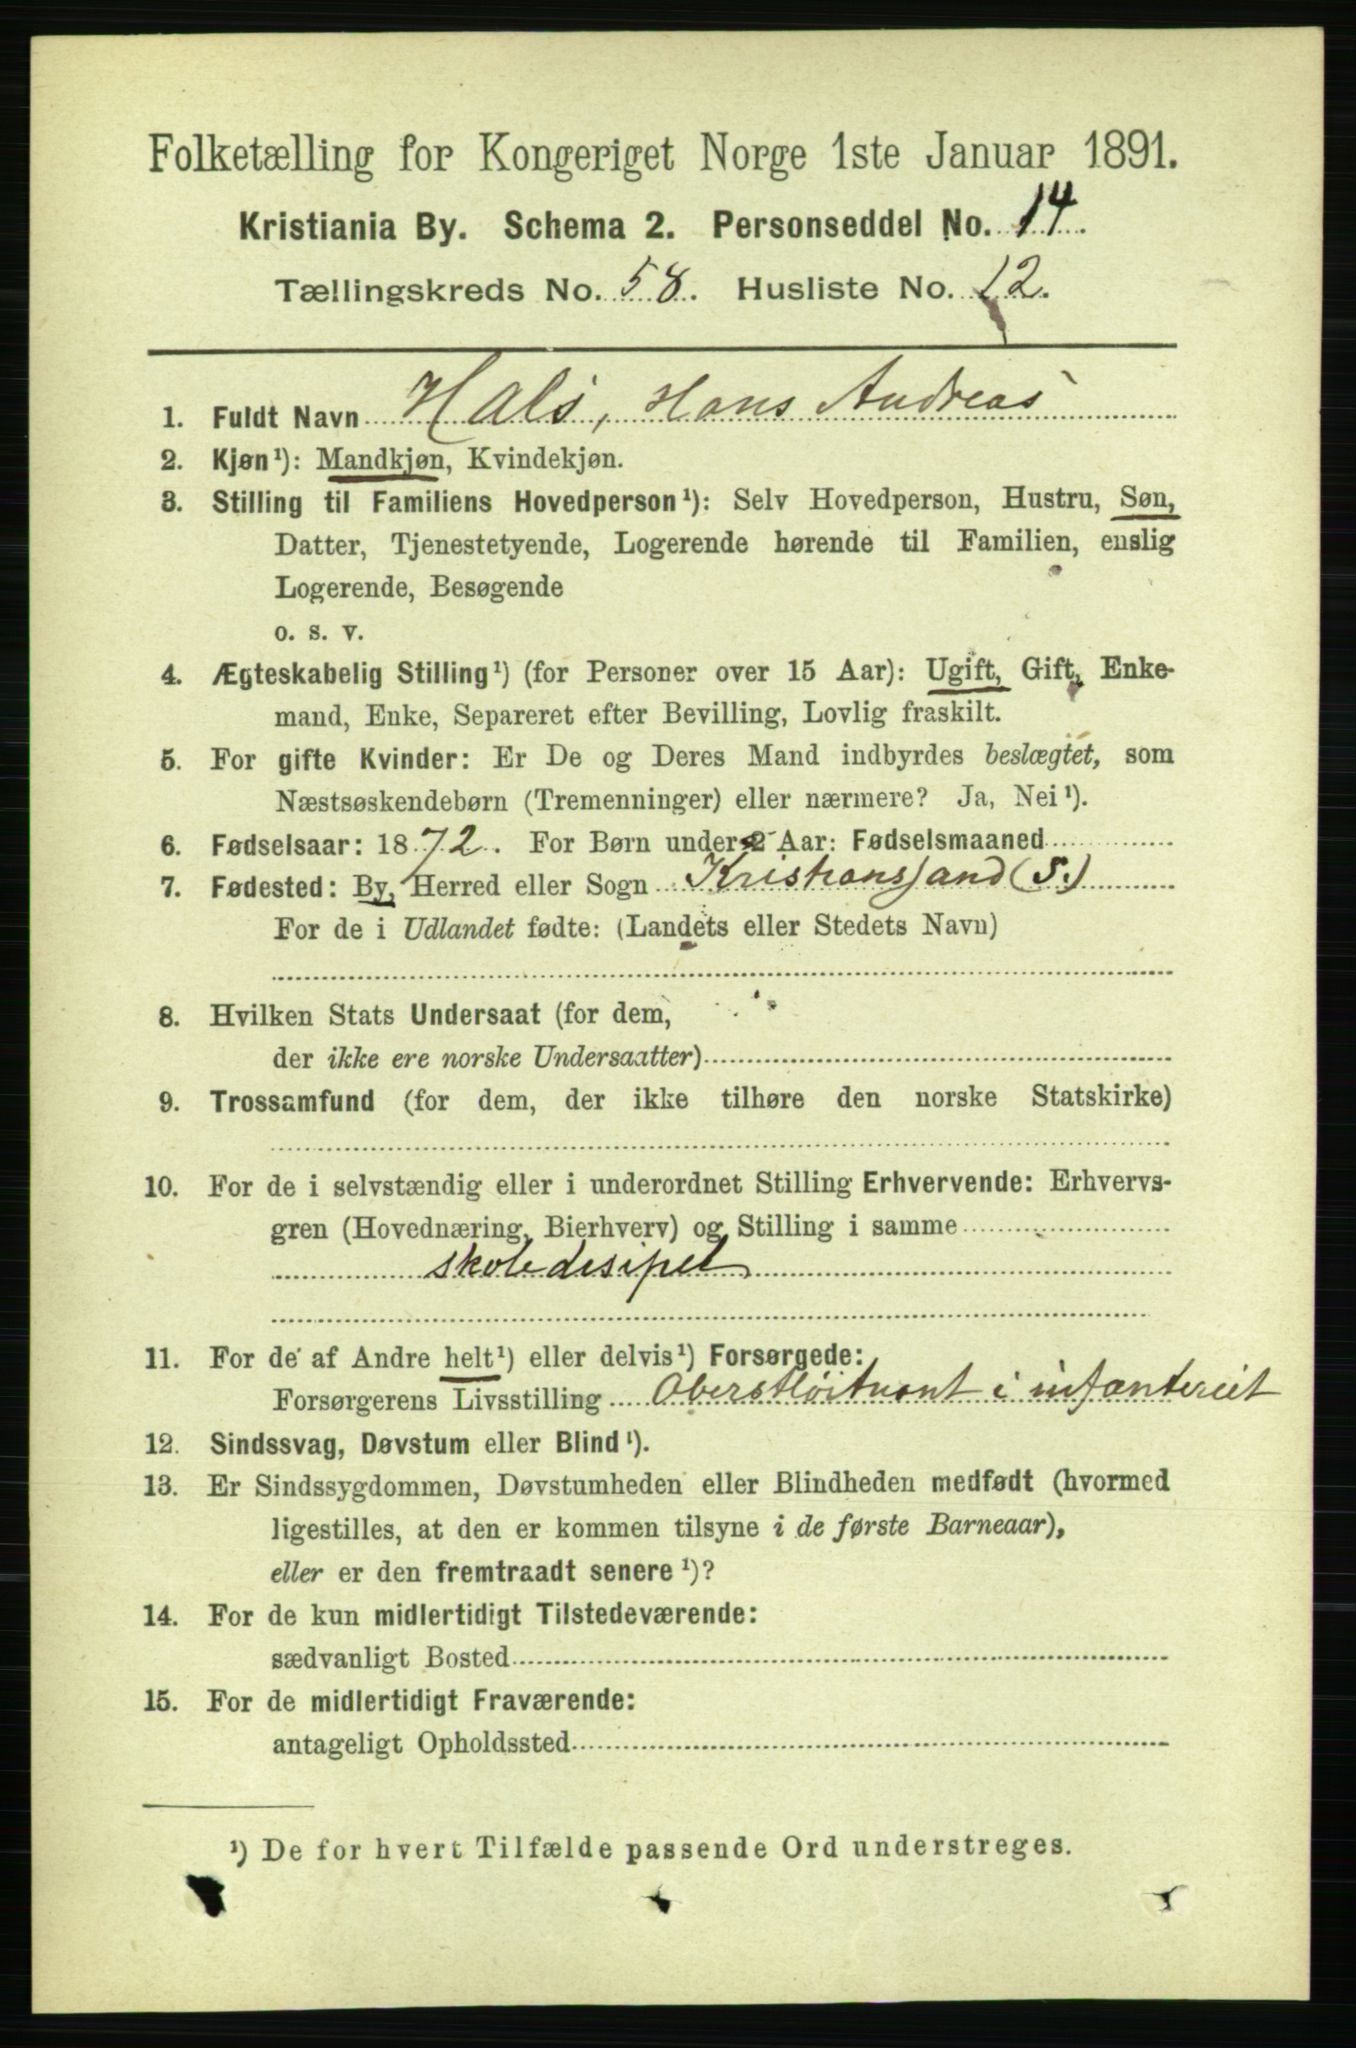 Folketælling for Kongeriget Norge 1ste Januar 1891.
Kristiania By. Schema 2. Personseddel No. 14.
Tællingskreds No. 58. Husliste No. 12.
1. Fuldt Navn Hals, Hans Andreas
2. Kjøn¹): Mandkjøn, Kvindekjøn.
3. Stilling til Familiens Hovedperson¹): Selv Hovedperson, Hustru, Søn,
Datter, Tjenestetyende, Logerende hørende til Familien, enslig
Logerende, Besøgende
o. s. v.
4. Ægteskabelig Stilling¹) (for Personer over 15 Aar): Ugift, Gift, Enke-
mand, Enke, Separeret efter Bevilling, Lovlig fraskilt.
5. For gifte Kvinder: Er De og Deres Mand indbyrdes beslægtet, som
Næstsøskendebørn (Tremenninger) eller nærmere? Ja, Nei¹).
6. Fødselsaar: 1872. For Børn under 2 Aar: Fødselsmaaned
7. Fødested: By, Herred eller Sogn Kristianssand (S.)
For de i Udlandet fødte: (Landets eller Stedets Navn)
8. Hvilken Stats Undersaat (for dem,
der ikke ere norske Undersaatter)
9. Trossamfund (for dem, der ikke tilhøre den norske Statskirke)
10. For de i selvstændig eller i underordnet Stilling Erhvervende: Erhvervs-
gren (Hovednæring, Bierhverv) og Stilling i samme
skoledisipel
11. For de af Andre helt¹) eller delvis¹) Forsørgede:
Forsørgerens Livsstilling Oberstløitnant i infanteriet
12. Sindssvag, Døvstum eller Blind¹).
13. Er Sindssygdommen, Døvstumheden eller Blindheden medfødt (hvormed
ligestilles, at den er kommen tilsyne i de første Barneaar),
eller er den fremtraadt senere¹)?
14. For de kun midlertidigt Tilstedeværende:
sædvanligt Bosted
15. For de midlertidigt Fraværende:
antageligt Opholdssted
¹) De for hvert Tilfælde passende Ord understreges.